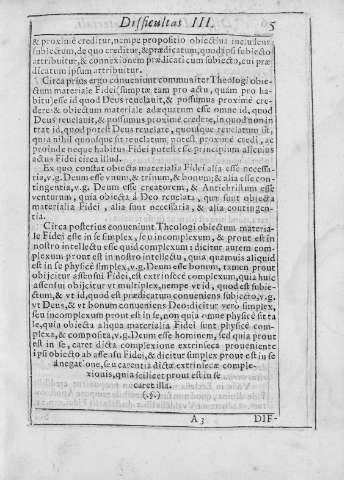 Difficultas III. 5
& proximè creditur, nempe propositio obiectiua includens
subiectum, de quo creditur, & prædicatum, quod ipsi subiecto
attribuitur, & connexionem prædicati cum subiecto, cui præ
dicatum ipsum attribuitur.
Circa prius ergo conueniunt communiter Theologi obie-
ctum materiale Fidei (sumptæ tam pro actu, quàm pro ha
bitu) esse id quod Deus reuelauit, & possumus proximè cre
dere: & obiectum materiale adæquatum esse omne id, quod
Deus reuelauit, & possumus proximè credere, in quod non in
trat id, quod potest Deus reuelare, quousque reuelatum sit,
quia nihil quousque sit reuelatum potest proximè credi, ac
proinde neque habitus Fidei potest esse principium alicuius
actus Fidei circa illud.
Ex quo constat obiecta materialia Fidei alia esse necessa-
ria, v.g. Deum esse vnum, & trinum, & bonum; & alia esse con-
tingentia, v.g. Deum esse creatorem, & Antichristum esse
venturum, quia obiecta à Deo reuelata, quæ sunt obiecta
materialia Fidei, alia sunt necessaria, & alia contingen-
tia.
Circa posterius conueniunt Theologi obiectum materia-
le Fidei esse in se simplex, seu incomplexum, & prout est in
nostro intellectu esse quid complexum: dicitur autem com
plexum prout est in nostro intellectu, quia quamuis aliquid
est in se physicè simplex, v.g. Deum esse bonum, tamen prout
obijcitur assensui Fidei, est extrinsecè complexum, quia huic
assensui obijcitur vt multiplex, nempe vt id, quod est subie-
ctum, & vt id, quod est prædicatum conueniens subiecto, v.g.
vt Deus, & vt bonum conueniens Deo: dicitur verò simplex,
seu incomplexum prout est in se, non quia omne physicè sit ta
le, quia obiecta aliqua materialia Fidei sunt physicè com-
plexa, & composita, v.g. Deum esse hominem, sed quia prout
est in se, caret dicta complexione extrinseca proueniente
ipsi obiecto ab assensu Fidei, & dicitur simplex prout est in se
à negatione, seu carentia dictæ extrinsecæ comple-
xionis, quia scilicet prout est in se
caret illa.
(.§.)
A 3 DIF-